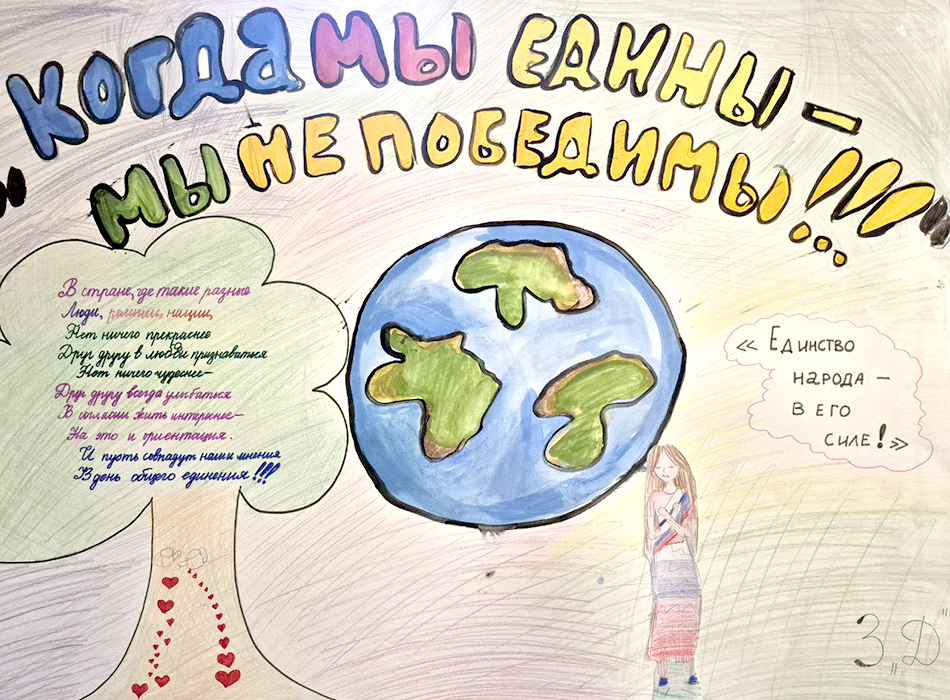 „КОГДА МЫ ЕДИНЫ —
МЫ НЕ ПОБЕДИМЫ!!!"
В стране, где такие разные
Люди, религии, нации,
Нет ничего прекраснее
Друг другу в любви признаваться
Нет ничего чудесне-
Друг другу всегда улыбаться
В согласии жить интереснее-
На это и ориентация.
И пусть совпадут наши мнения
В день общего единения!!!
« ЕДИНСТВО
НАРОДА –
В ЕГО
СИЛЕ! »
3 „Д"